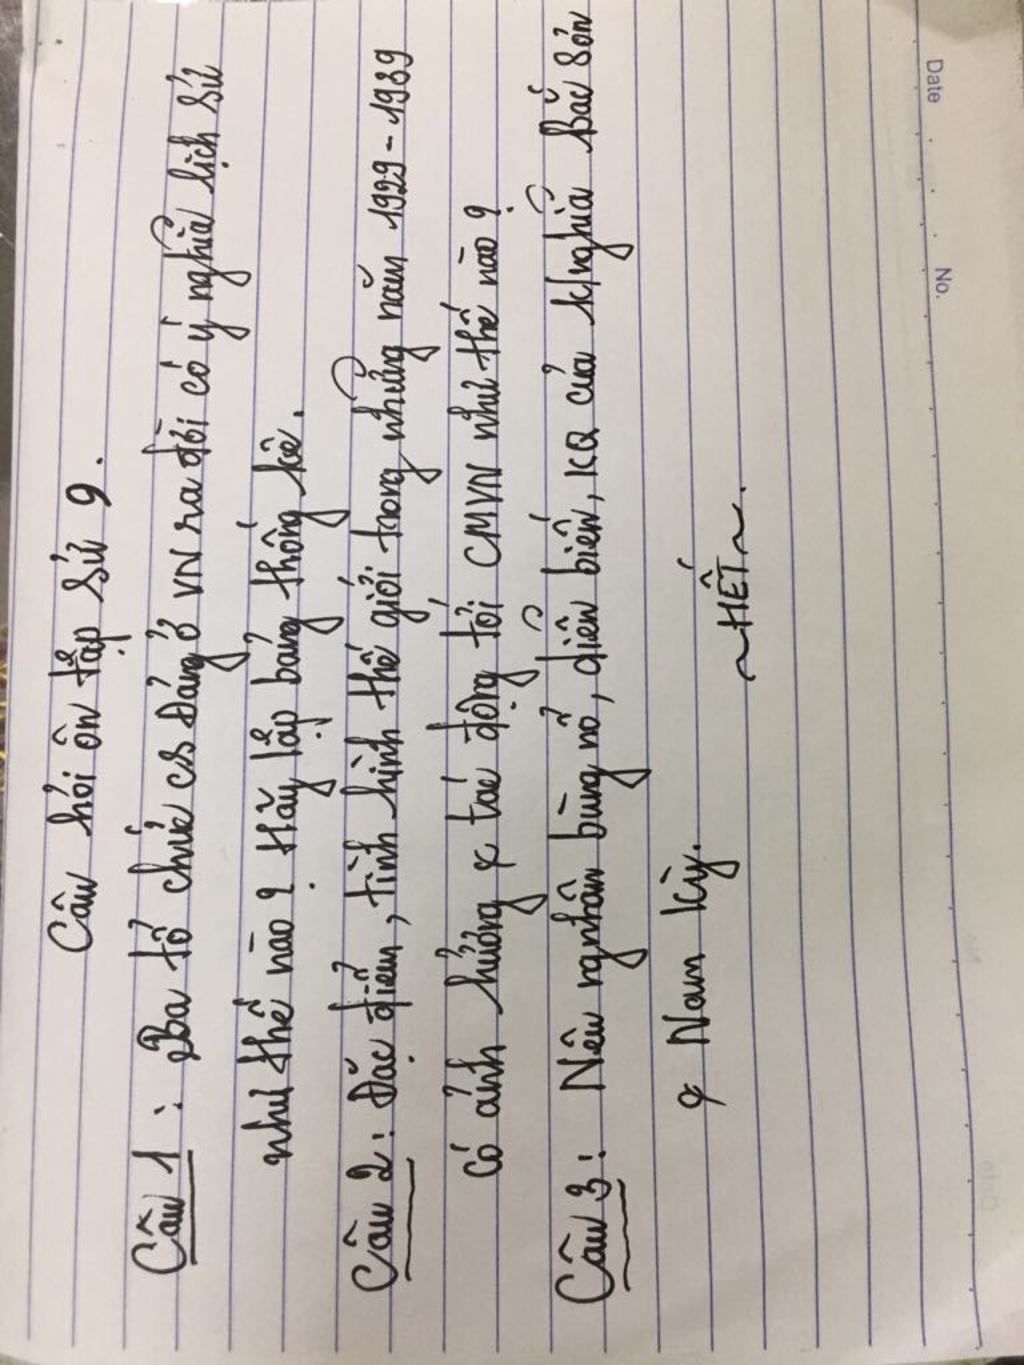 Câu hỏi ôn tập Sử 9.
Câu 1 : Ba tổ chức cs Đảng ở VN ra đời có ý nghĩa lịch sử
như thế nào ? Hãy lập bảng thống kê.
Câu 2 : Đặc điểm, tình hình thế giới trong những năm 1929 - 1939
có ảnh hưởng & tác động tới CMVN như thế nào ?
Câu 3 : Nêu ng nhân bùng nổ, diễn biến, KQ của k/nghĩa Bắc Sơn
& Nam Kỳ.
~ HẾT ~.
Date
No.